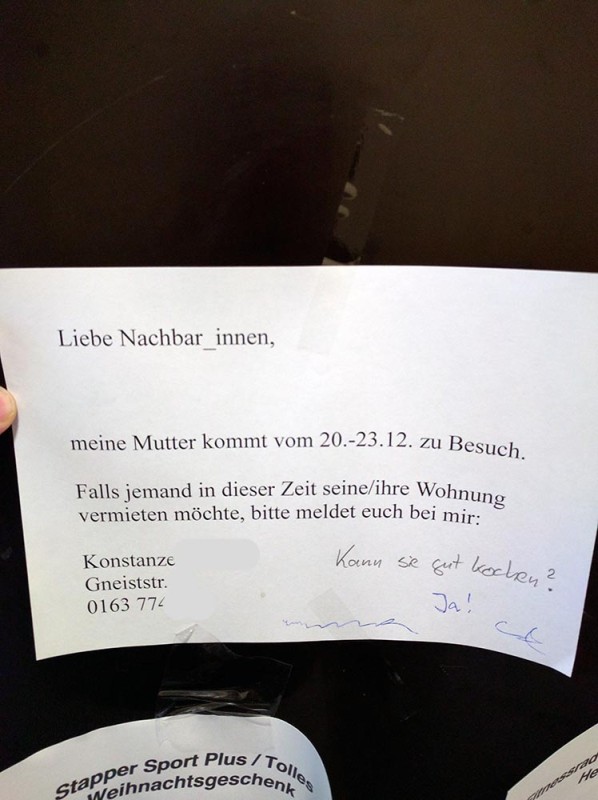 Liebe Nachbar_innen,
meine Mutter kommt vom 20.-23.12. zu Besuch.
Falls jemand in dieser Zeit seine/ihre Wohnung
vermieten möchte, bitte meldet euch bei mir:
Konstanze
Gneiststr.
0163 774
Kann sie gut kochen?
Ja!
Stapper Sport Plus / Tolles
Weihnachtsgeschenk